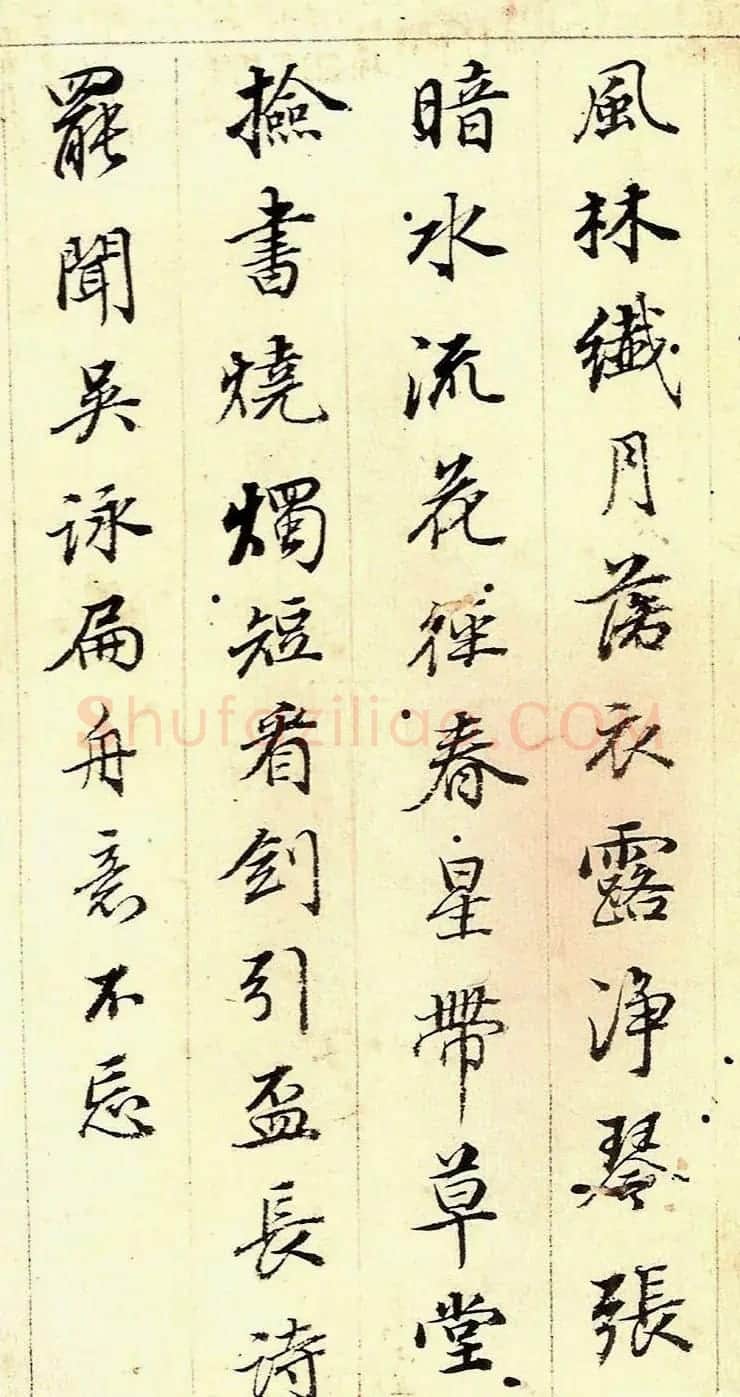 風林纖月落衣露淨琴張
暗水流花徑春星帶草堂
撿書燒燭短看劍引盃長詩
罷聞吳詠扁舟意不忘
Shufaziliao.COM